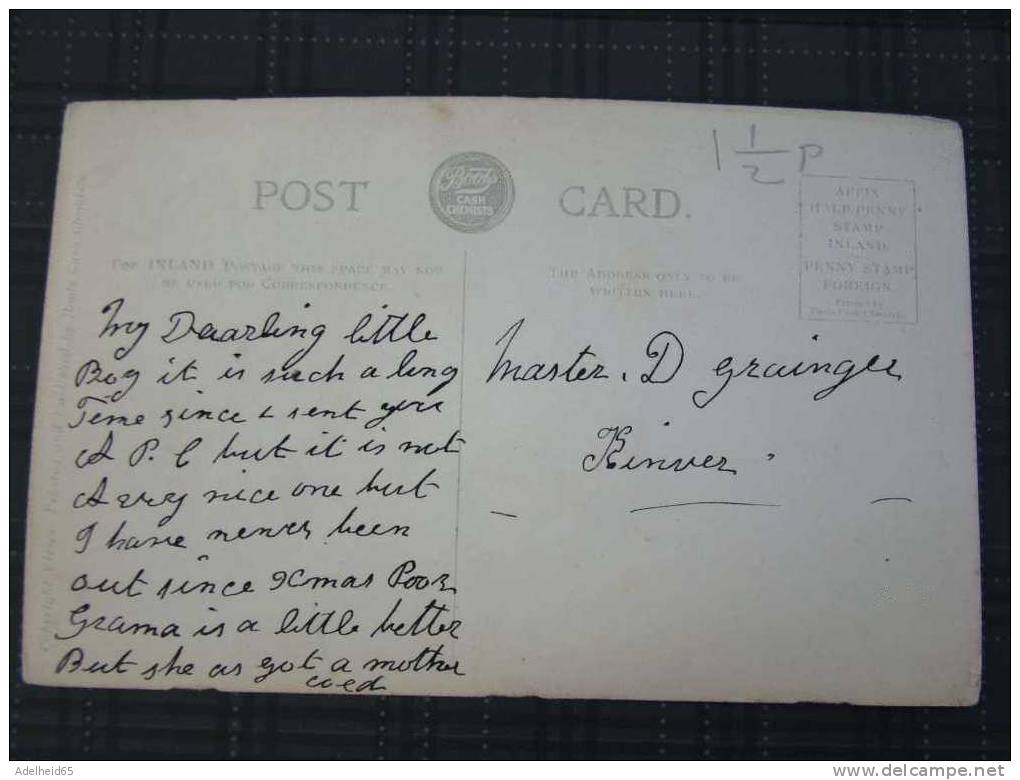 1 1/2 P
POST CARD.
Boots
CASH
CHEMISTS
AFFIX
HALF-PENNY
STAMP
INLAND.
PENNY STAMP
FOREIGN.
FOR INLAND POSTAGE THIS SPACE MAY NOW
BE USED FOR CORRESPONDENCE.
THE ADDRESS ONLY TO BE
WRITTEN HERE.
My Daarling little
Boy it is such a long
Teme since I sent you
A P. C but it is not
A very nice one but
I have never been
out since Xmas Poor
Grama is a little better
But she as got a mother
coed
Master. D Grainger
Kinver
Adelheid65
http://www.delcampe.net